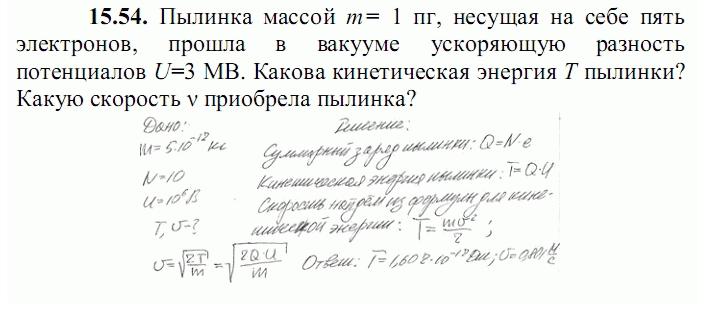 15.54. Пылинка массой m= 1 пг, несущая на себе пять
электронов, прошла в вакууме ускоряющую разность
потенциалов U=3 МВ. Какова кинетическая энергия T пылинки?
Какую скорость ν приобрела пылинка?
Дано: Решение:
m=5·10⁻¹² кг Суммарный заряд пылинки: Q=N·e
N=10 Кинетическая энергия пылинки: T=Q·U
U=10⁶В Скорость найдём из формулы для кине-
T, υ-? тической энергии: T=mυ²/2 ;
υ=√(2T/m)=√(2Q·U/m) Ответ: T=1,602·10⁻¹²Дж; υ=0,801 м/с